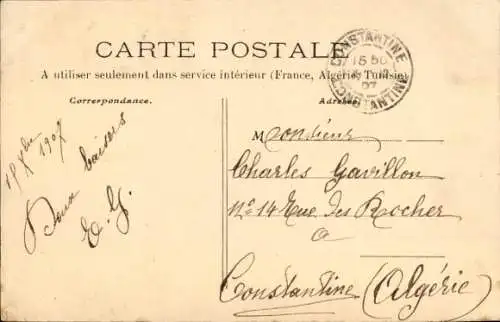 CARTE POSTALE
A utiliser seulement dans service intérieur (France, Algérie, Tunisie)
Correspondance.
Adresse.
CONSTANTINE
15 50
07
CONSTANTINE
18 Xbre 1907
Doux baisers
E. G.
Monsieur
Charles Gavillon
No 14 Rue des Rocher
a
Constantine (Algérie)